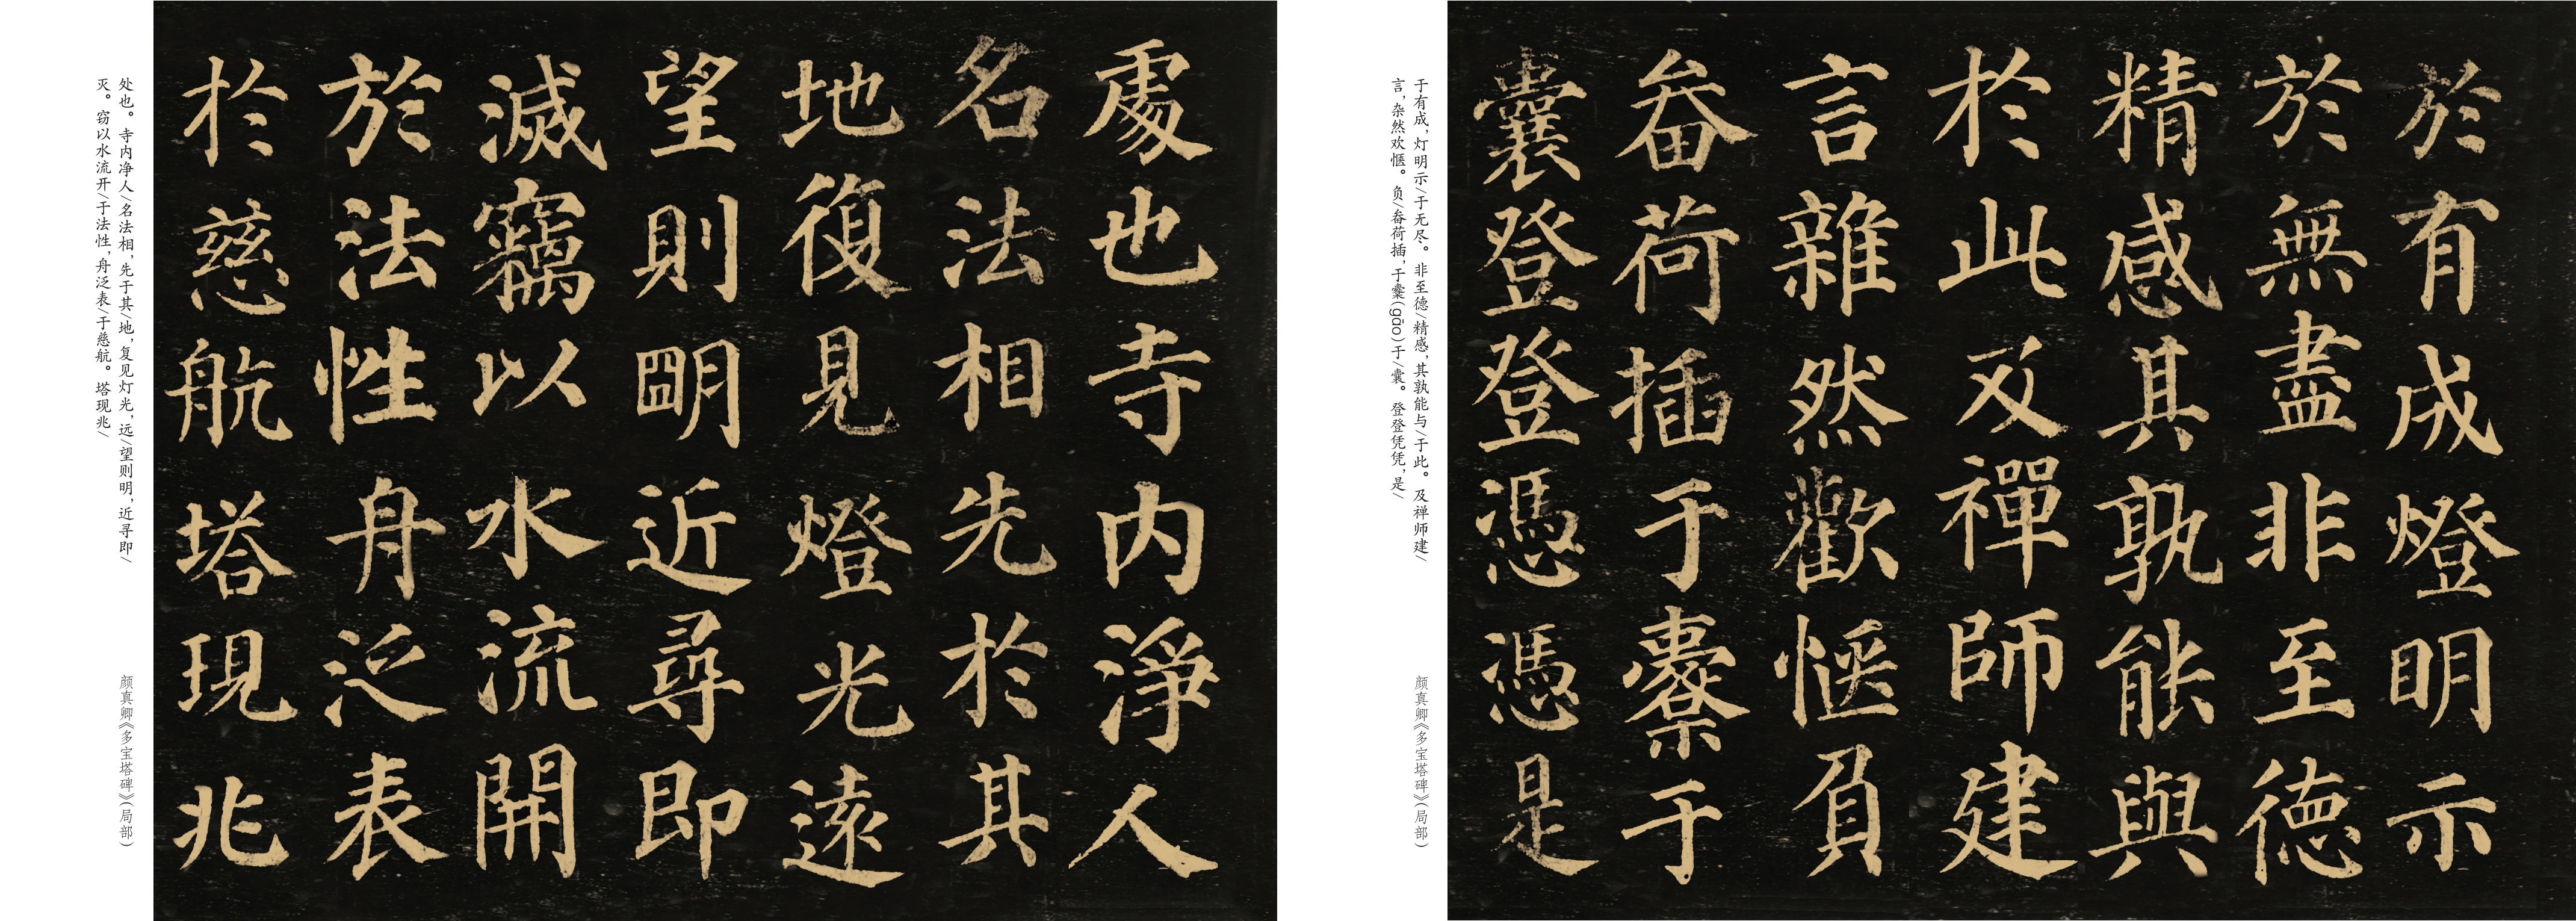 處也寺内淨人
名法相先於其
地復見燈光遠
望則明近尋即
滅竊以水流開
於法性舟泛表
於慈航塔現兆
处也。寺内净人/名法相,先于其/地,复见灯光,远/望则明,近寻即/
灭。窃以水流开/于法性,舟泛表/于慈航。塔现兆/
颜真卿《多宝塔碑》(局部)
於有成燈明示
於無盡非至德
精感其孰能與
於此及禪師建
言雜然歡愜負
畚荷插于櫜于
囊登登憑憑是
于有成,灯明示/于无尽。非至德/精感,其孰能与/于此。及禅师建/
言,杂然欢惬。负/畚荷插,于櫜(gāo)于/囊。登登凭凭,是/
颜真卿《多宝塔碑》(局部)